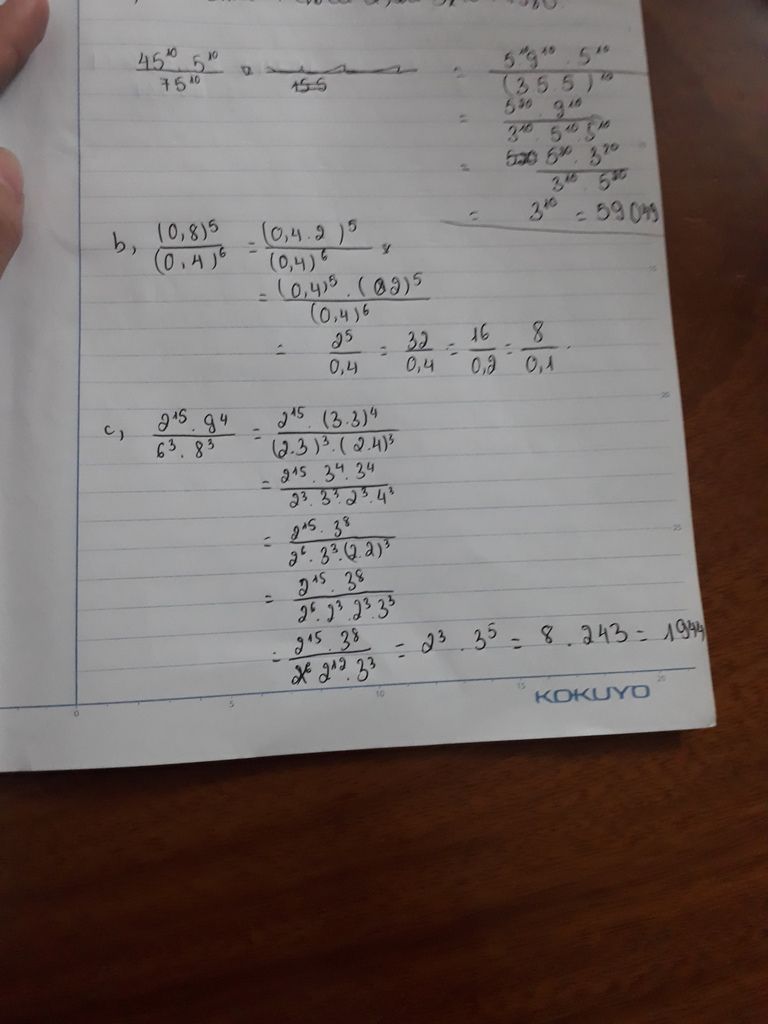 45¹⁰ . 5¹⁰ / 75¹⁰ = 5¹⁰ 9¹⁰ . 5¹⁰ / (3.5.5)¹⁰
= 5²⁰ . 9¹⁰ / 3¹⁰ . 5¹⁰ 5¹⁰
= 5²⁰ . 3²⁰ / 3¹⁰ . 5²⁰
= 3¹⁰ = 59049
b, (0,8)⁵ / (0,4)⁶ = (0,4.2)⁵ / (0,4)⁶
= (0,4)⁵ . (2)⁵ / (0,4)⁶
= 2⁵ / 0,4 = 32 / 0,4 = 16 / 0,2 = 8 / 0,1 .
c, 2¹⁵ . 9⁴ / 6³ . 8³ = 2¹⁵ . (3.3)⁴ / (2.3)³ . (2.4)³
= 2¹⁵ . 3⁴ . 3⁴ / 2³ . 3³ . 2³ . 4³
= 2¹⁵ . 3⁸ / 2⁶ . 3³ . (2.2)³
= 2¹⁵ . 3⁸ / 2⁶ . 2³ . 2³ . 3³
= 2¹⁵ . 3⁸ / 2¹² . 3³ = 2³ . 3⁵ = 8 . 243 = 1944
KOKUYO
0 5 10 15 20